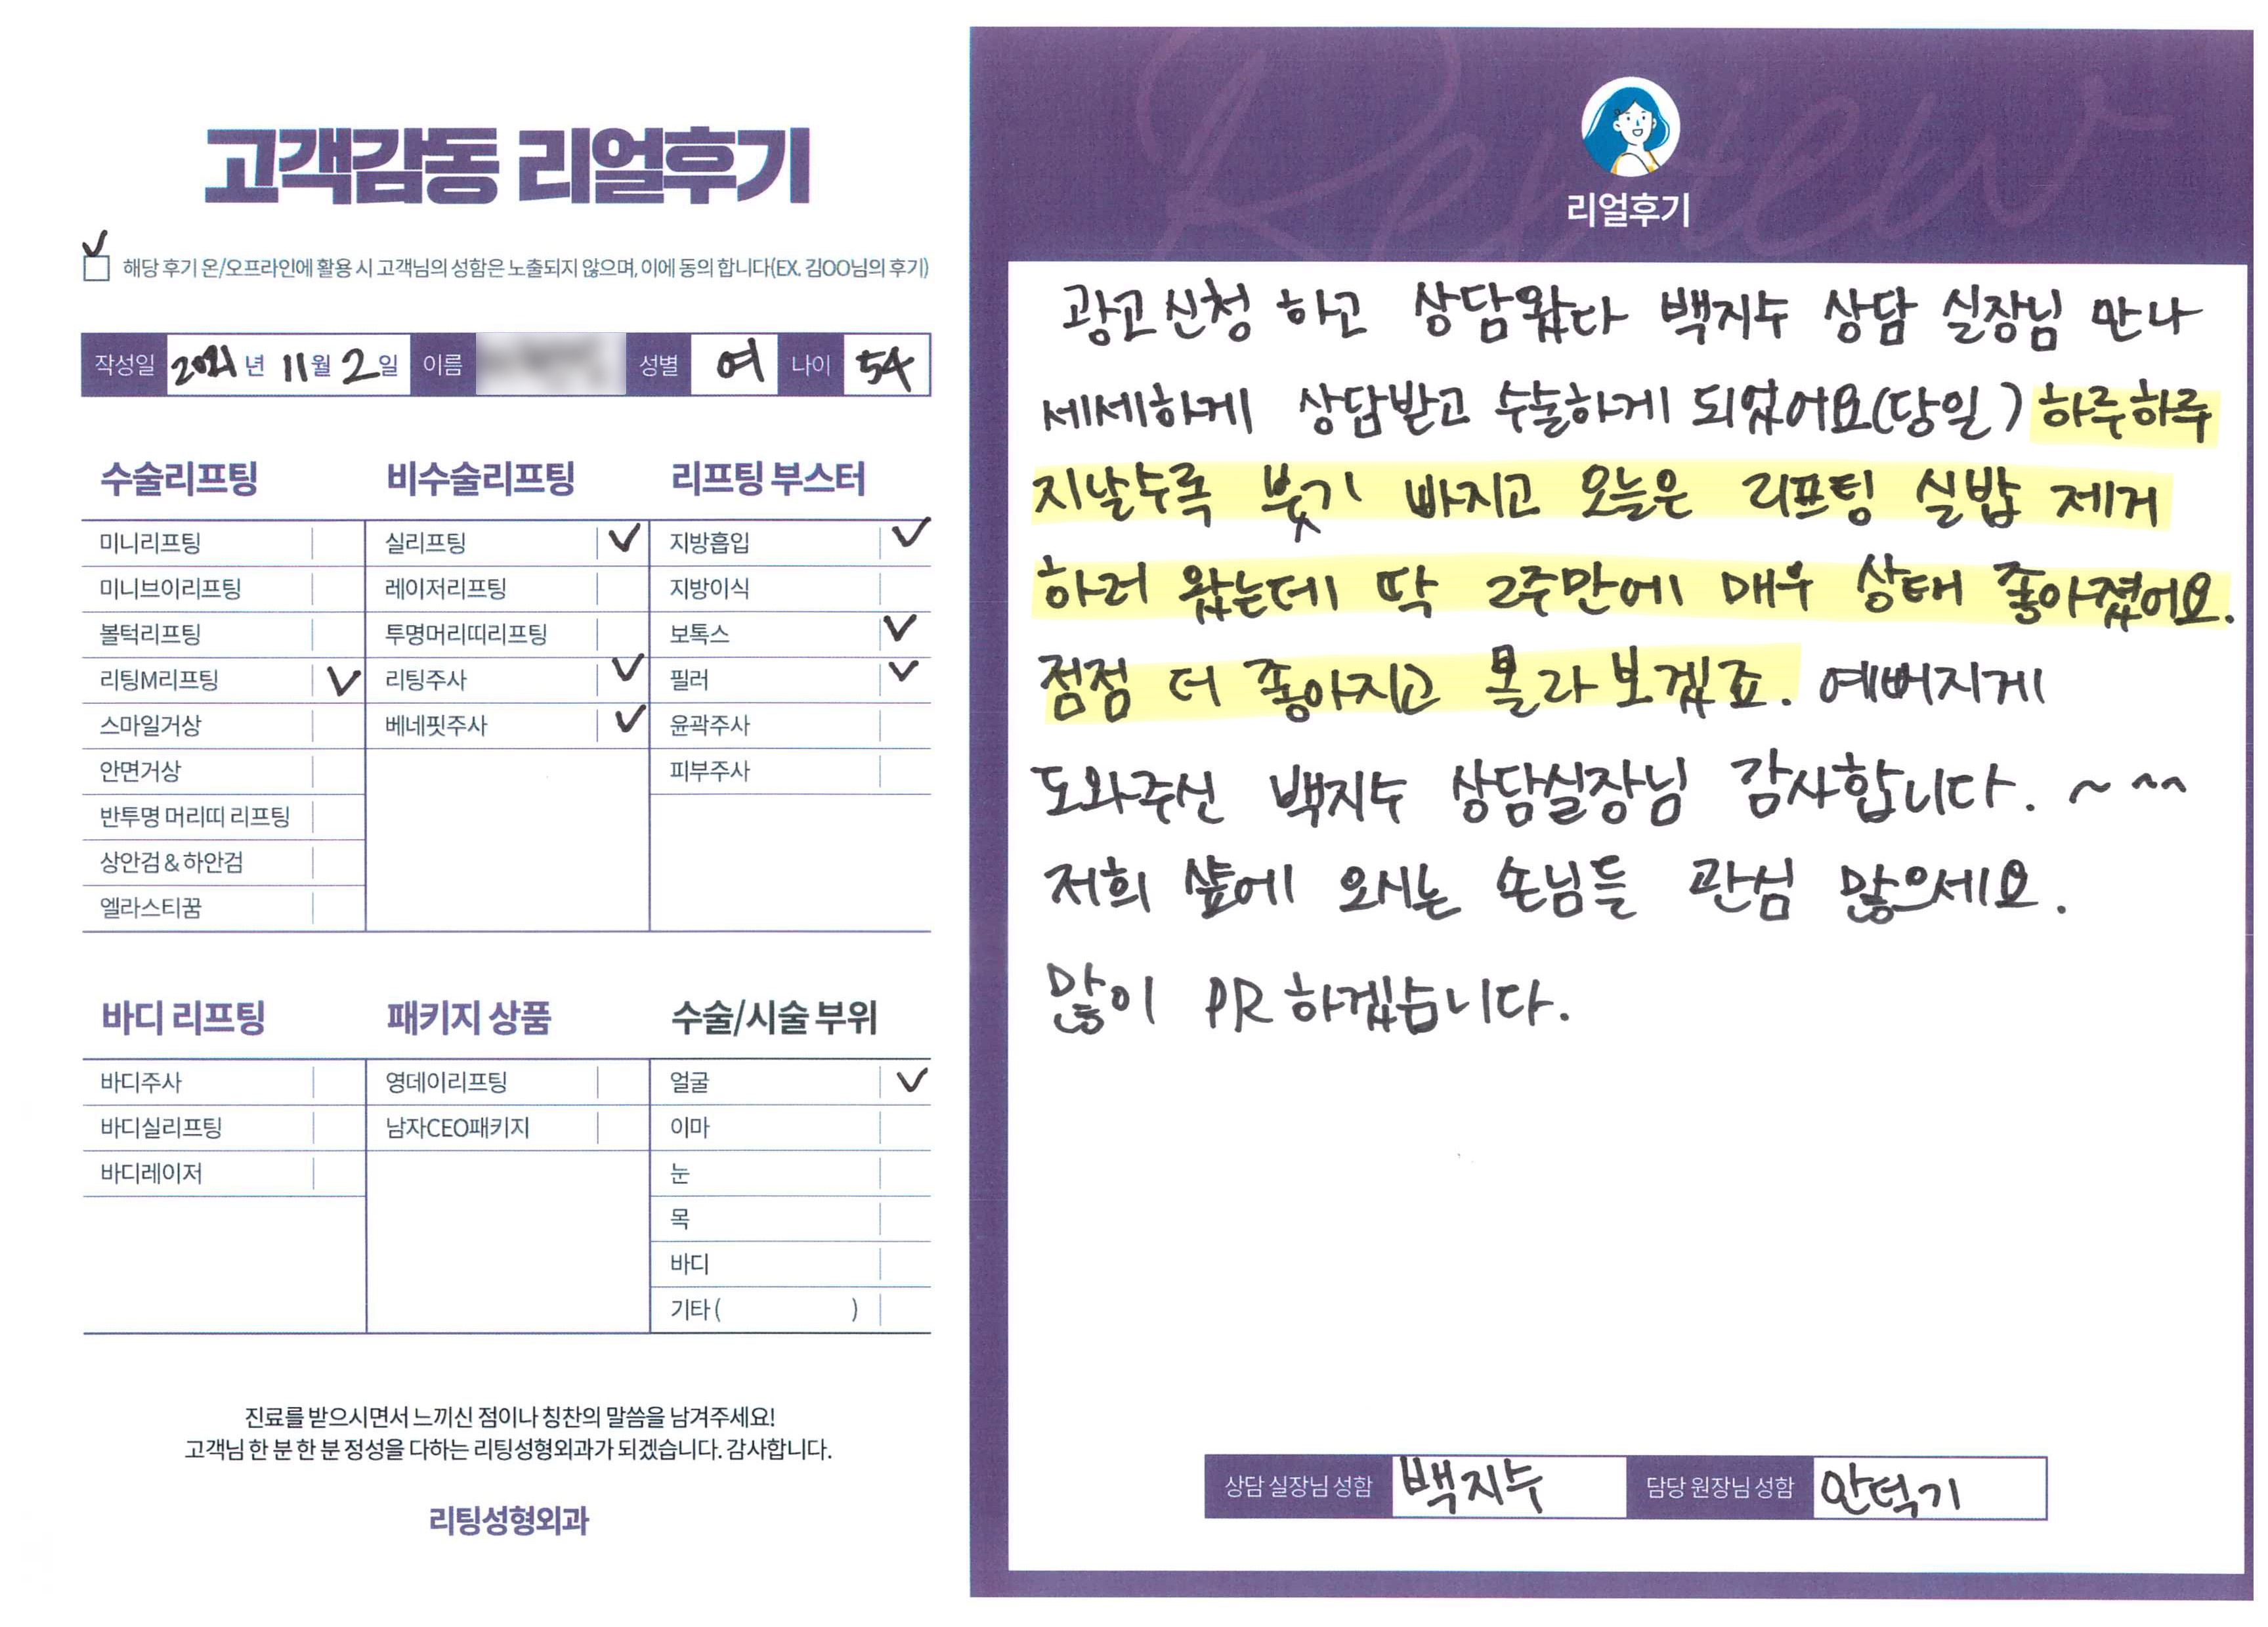 고객감동 리얼후기
해당 후기 온/오프라인에 활용 시 고객님의 성함은 노출되지 않으며, 이에 동의 합니다(EX. 김OO님의 후기)
작성일 2021년 11월 2일 이름 성별 여 나이 54
수술리프팅
미니리프팅
미니브이리프팅
볼턱리프팅
리팅M리프팅
스마일거상
안면거상
반투명 머리띠 리프팅
상안검 & 하안검
엘라스티꿈
비수술리프팅
실리프팅
레이저리프팅
투명머리띠리프팅
리팅주사
베네핏주사
리프팅 부스터
지방흡입
지방이식
보톡스
필러
윤곽주사
피부주사
바디 리프팅
바디주사
바디실리프팅
바디레이저
패키지 상품
영데이리프팅
남자CEO패키지
수술/시술 부위
얼굴
이마
눈
목
바디
기타 ( )
진료를 받으시면서 느끼신 점이나 칭찬의 말씀을 남겨주세요!
고객님 한 분 한 분 정성을 다하는 리팅성형외과가 되겠습니다. 감사합니다.
리팅성형외과
Review
리얼후기
광고신청 하고 상담왔다 백지수 상담 실장님 만나
세세하게 상담받고 수술하게 되었어요(당일) 하루하루
지날수록 붓기 빠지고 오늘은 리프팅 실밥 제거
하러 왔는데 딱 2주만에 매우 상태 좋아졌어요.
점점 더 좋아지고 몰라보겠죠. 예뻐지게
도와주신 백지수 상담실장님 감사합니다. ~ ^^
저희 샾에 오시는 손님들 관심 많으세요.
많이 PR 하겠습니다.
상담 실장님 성함 백지수 담당 원장님 성함 안덕기